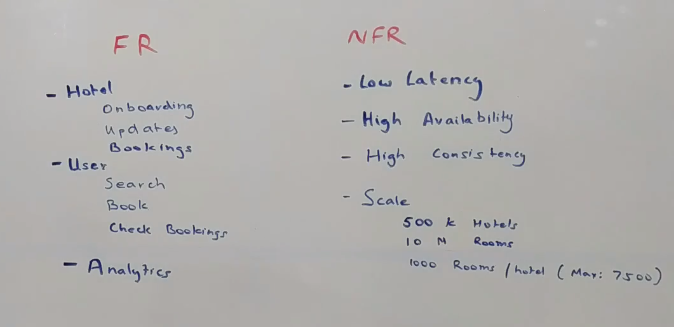 FR
- Hotel
Onboarding
Updates
Bookings
- User
Search
Book
Check Bookings
- Analytics
NFR
- Low Latency
- High Availability
- High Consistency
- Scale
500 k Hotels
10 M Rooms
1000 Rooms / hotel (Max: 7500)